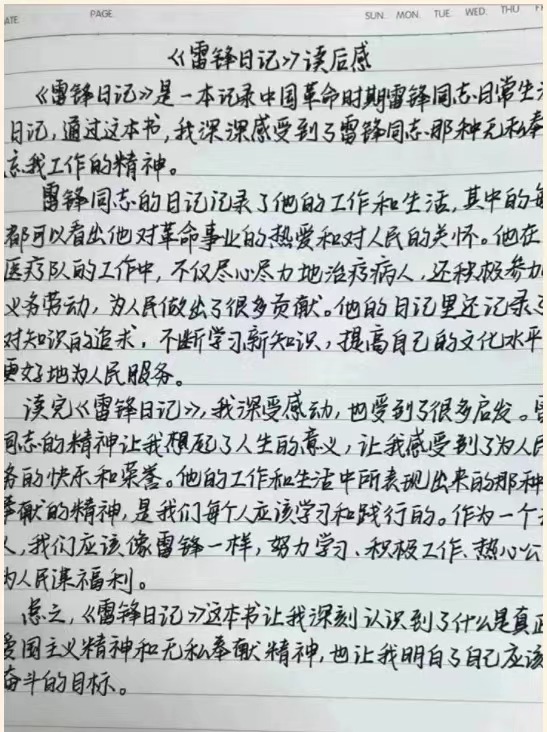 ATE PAGE SUN. MON. TUE. WED. THU
《雷锋日记》读后感
《雷锋日记》是一本记录中国革命时期雷锋同志日常生
日记，通过这本书，我深深感受到了雷锋同志那种无私奉
忘我工作的精神。
雷锋同志的日记记录了他的工作和生活，其中的每
都可以看出他对革命事业的热爱和对人民的关怀。他在
医疗队的工作中，不仅尽心尽力地治疗病人，还积极参加
义务劳动，为人民做出了很多贡献。他的日记里还记录了
对知识的追求，不断学习新知识，提高自己的文化水平
更好地为人民服务。
读完《雷锋日记》，我深受感动，也受到了很多启发。雷
同志的精神让我想起了人生的意义，让我感受到了为人民
务的快乐和荣誉。他的工作和生活中所表现出来的那种
奉献的精神，是我们每个人应该学习和践行的。作为一个
人，我们应该像雷锋一样，努力学习、积极工作、热心公
为人民谋福利。
总之，《雷锋日记》这本书让我深刻认识到了什么是真正
爱国主义精神和无私奉献精神，也让我明白了自己应该
奋斗的目标。